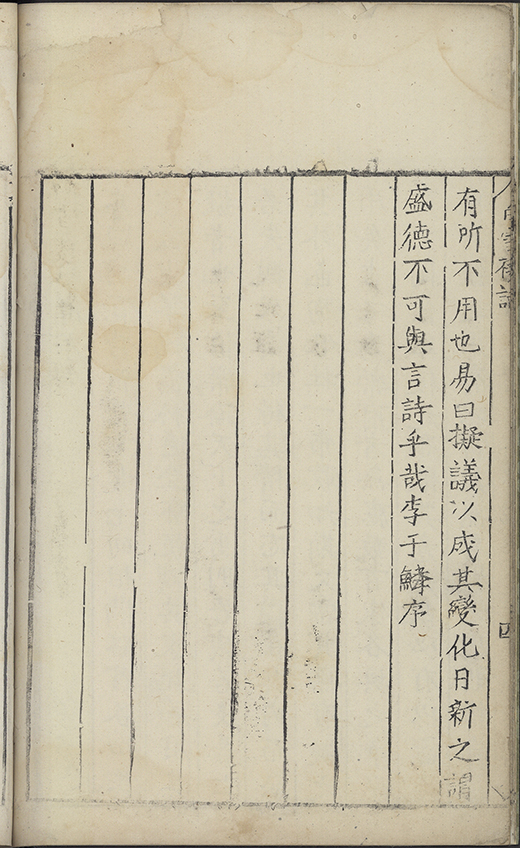 有所不用也易曰擬議以成其變化日新之謂
盛德不可與言詩乎哉李于鱗序